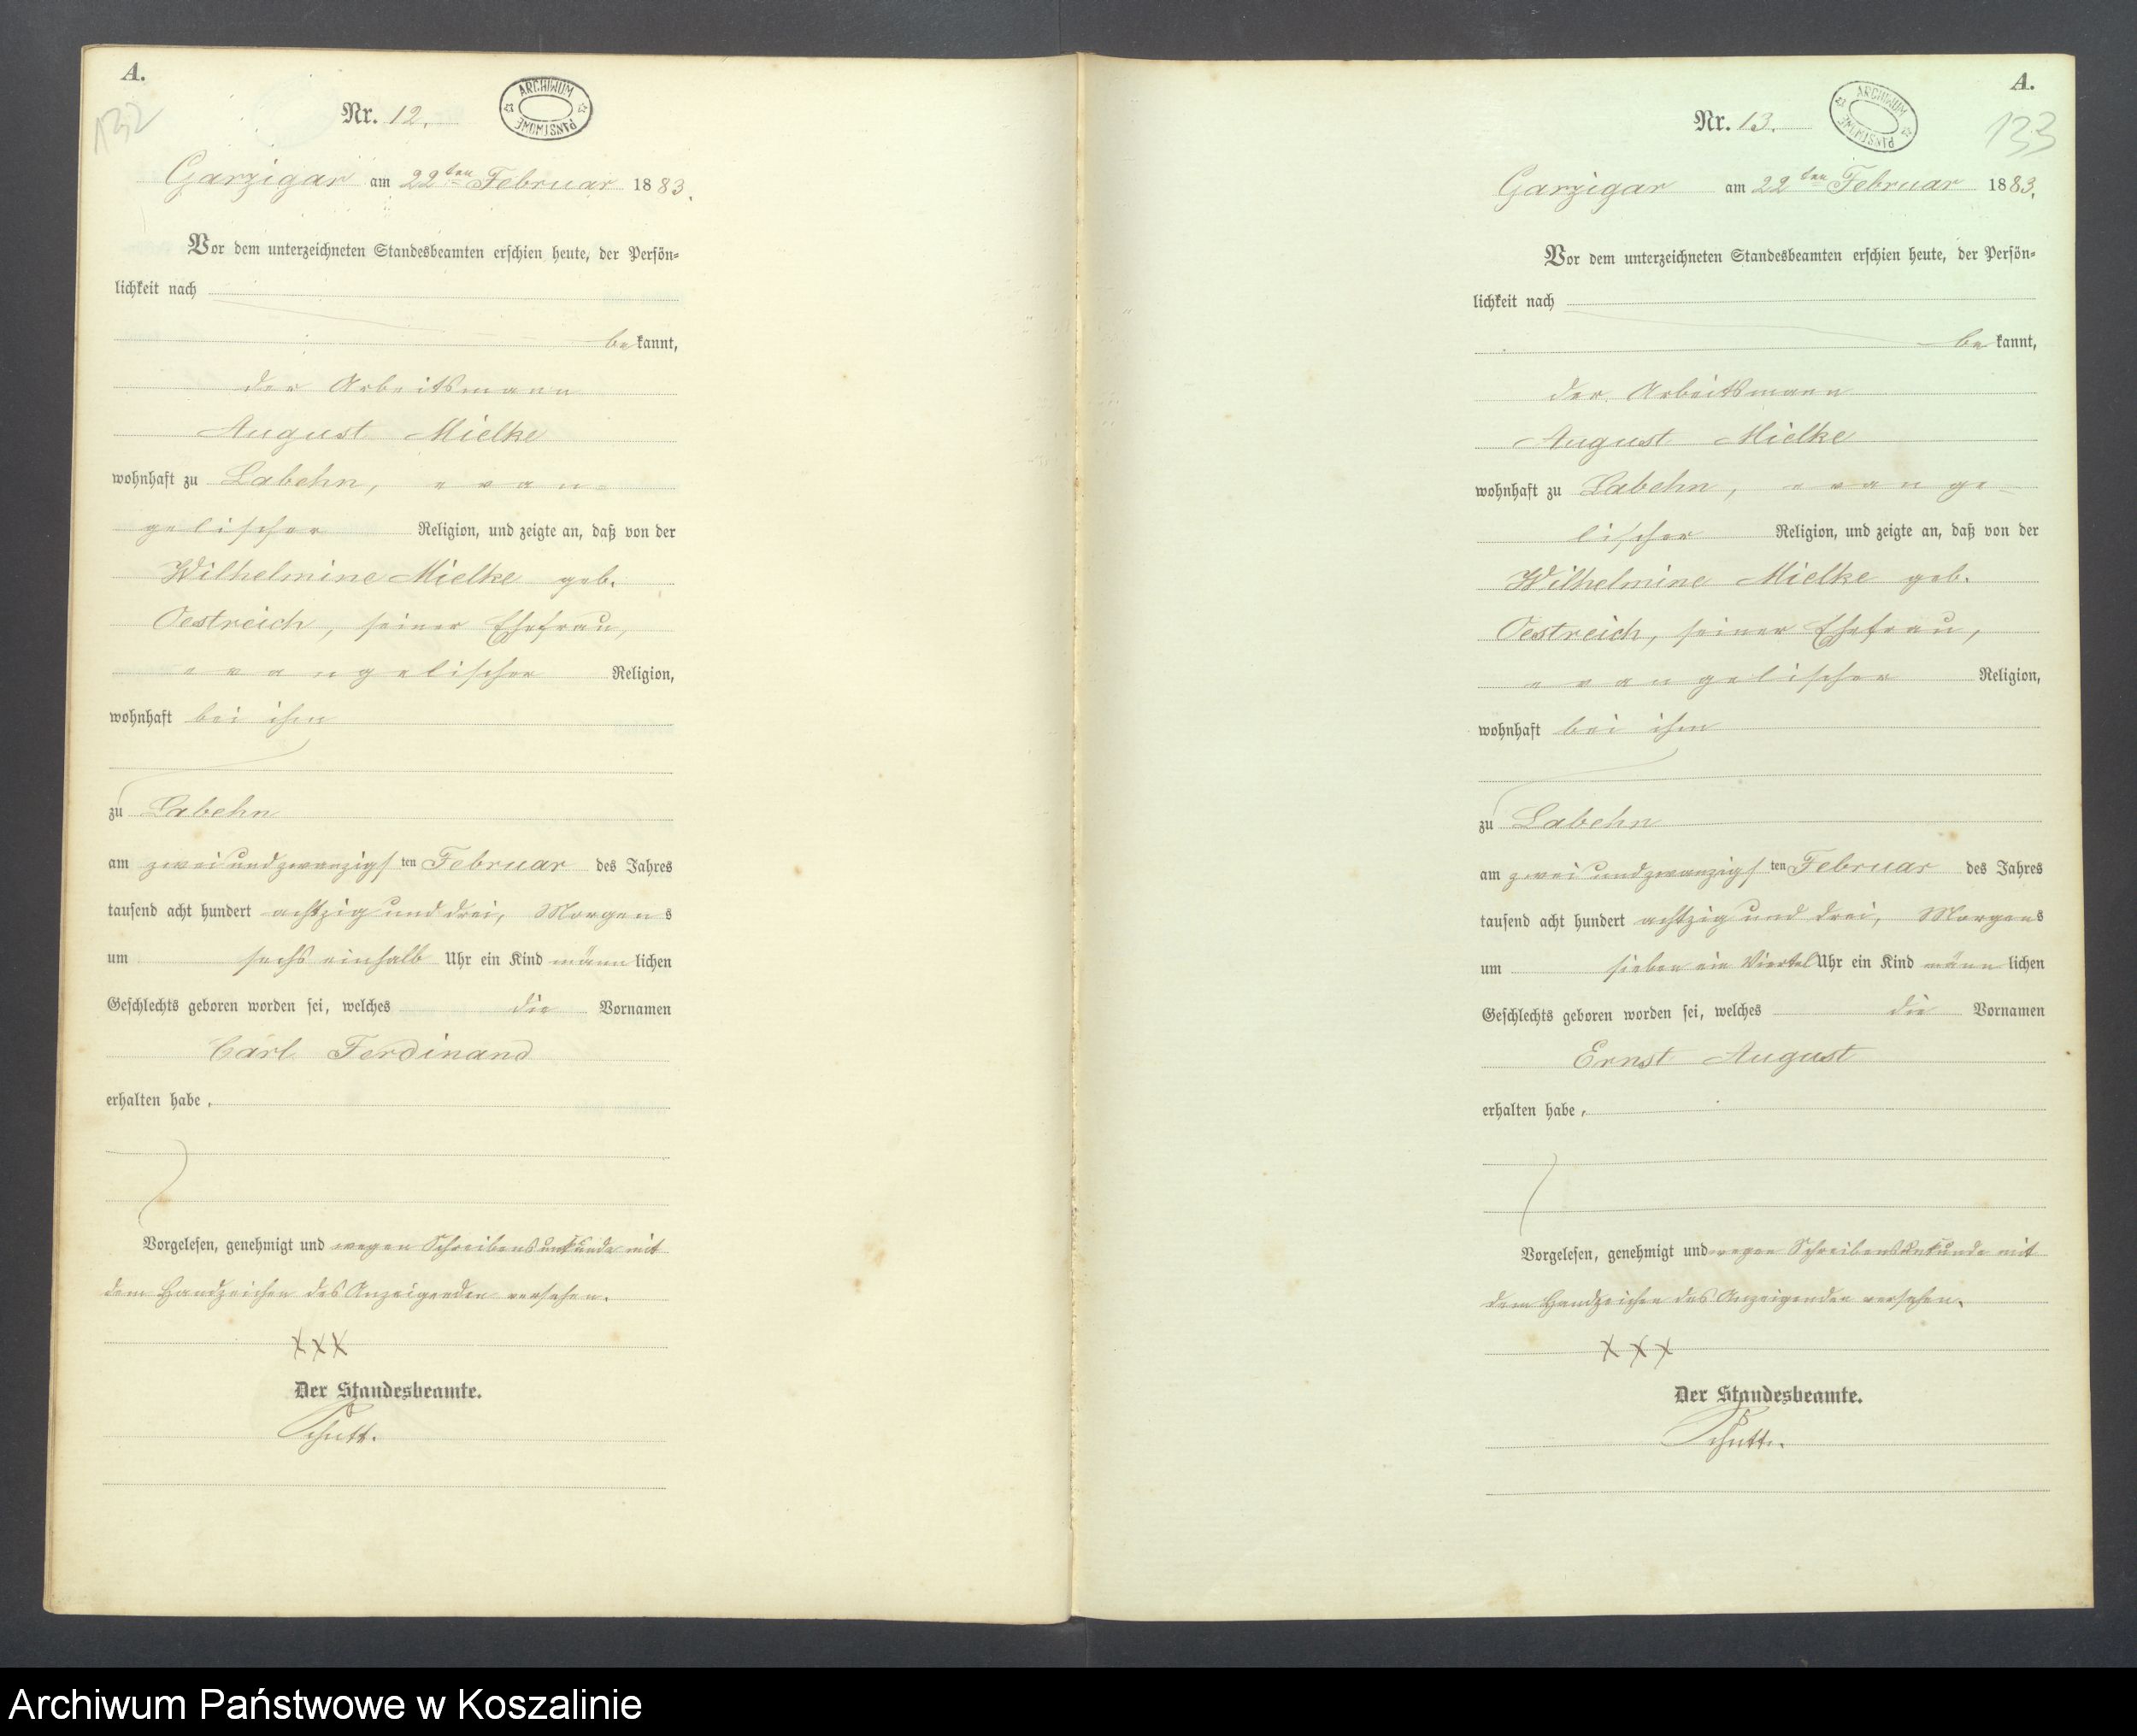 A.
132
Nr. 12.
ARCHIWUM PAŃSTWOWE
Garzigar am 22ten Februar 1883.
Vor dem unterzeichneten Standesbeamten erschien heute, der Persön-
lichkeit nach
bekannt,
der Arbeitsmann
August Mielke
wohnhaft zu Labehn, evan-
gelischer Religion, und zeigte an, daß von der
Wilhelmine Mielke geb.
Oestreich, seiner Ehefrau,
evangelischer Religion,
wohnhaft bei ihm
zu Labehn
am zwei und zwanzigsten Februar des Jahres
tausend acht hundert achtzig und drei, Morgens
um sechs einhalb Uhr ein Kind männlichen
Geschlechts geboren worden sei, welches die Vornamen
Carl Ferdinand
erhalten habe.
Vorgelesen, genehmigt und wegen Schreibensunkunde mit
dem Handzeichen des Anzeigenden versehen.
XXX
Der Standesbeamte.
Schutt.
A.
133
Nr. 13.
ARCHIWUM PAŃSTWOWE
Garzigar am 22ten Februar 1883.
Vor dem unterzeichneten Standesbeamten erschien heute, der Persön-
lichkeit nach
bekannt,
der Arbeitsmann
August Mielke
wohnhaft zu Labehn, evange-
lischer Religion, und zeigte an, daß von der
Wilhelmine Mielke geb.
Oestreich, seiner Ehefrau,
evangelischer Religion,
wohnhaft bei ihm
zu Labehn
am zwei und zwanzigsten Februar des Jahres
tausend acht hundert achtzig und drei, Morgens
um sieben ein Viertel Uhr ein Kind männlichen
Geschlechts geboren worden sei, welches die Vornamen
Ernst August
erhalten habe.
Vorgelesen, genehmigt und wegen Schreibensunkunde mit
dem Handzeichen des Anzeigenden versehen.
XXX
Der Standesbeamte.
Schutt.
Archiwum Państwowe w Koszalinie